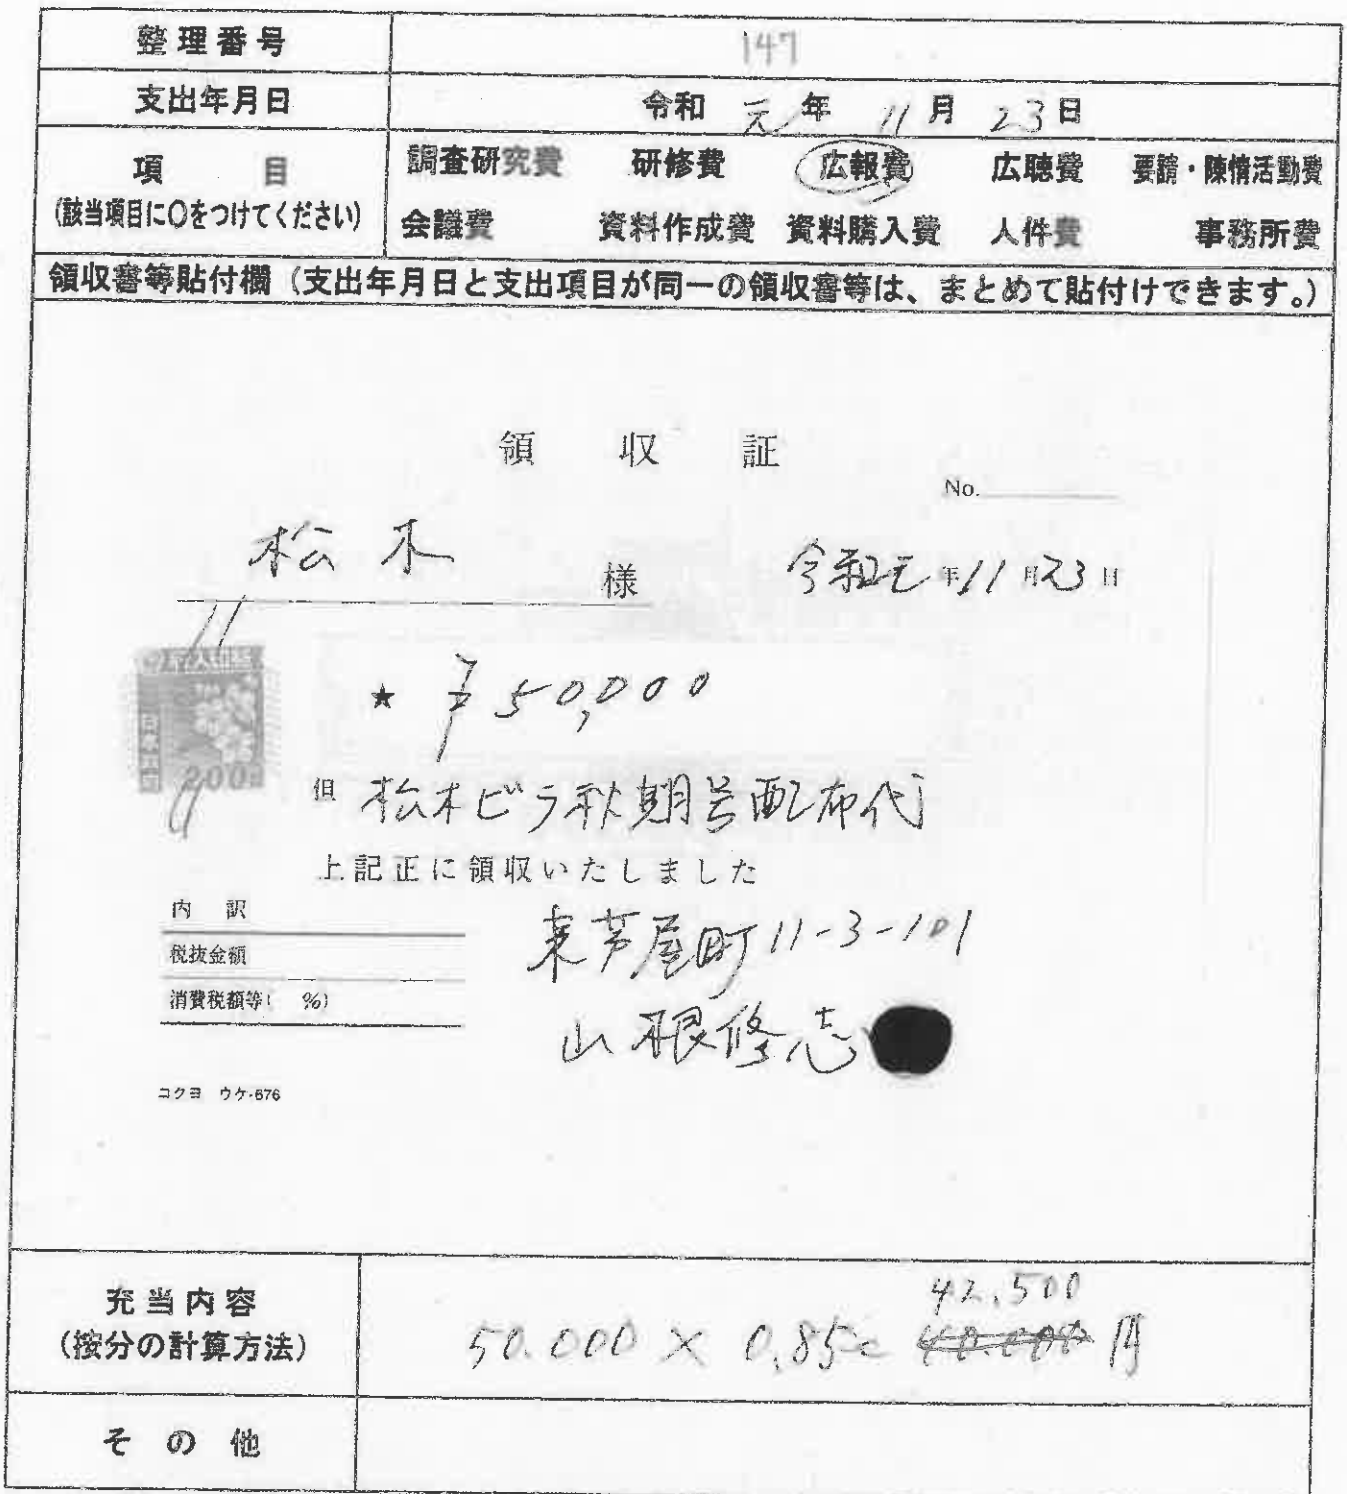 整理番号 147
支出年月日 令和 元 年 11 月 23 日
項目 調査研究費 研修費 広報費 広聴費 要請・陳情活動費
(該当項目に○をつけてください) 会議費 資料作成費 資料購入費 人件費 事務所費
領収書等貼付欄（支出年月日と支出項目が同一の領収書等は、まとめて貼付けできます。）
領収証
No.
松木 様 令和元年11月23日
収入印紙
日本政府
200円
★ ¥50,000
但 松木ビラ秋期号配布代
上記正に領収いたしました
内訳
税抜金額
消費税額等( %)
東芦屋町11-3-101
山根修志
コクヨ ウケ-676
充当内容
(按分の計算方法)
42,500
50.000 × 0.85= 40.000 円
その他